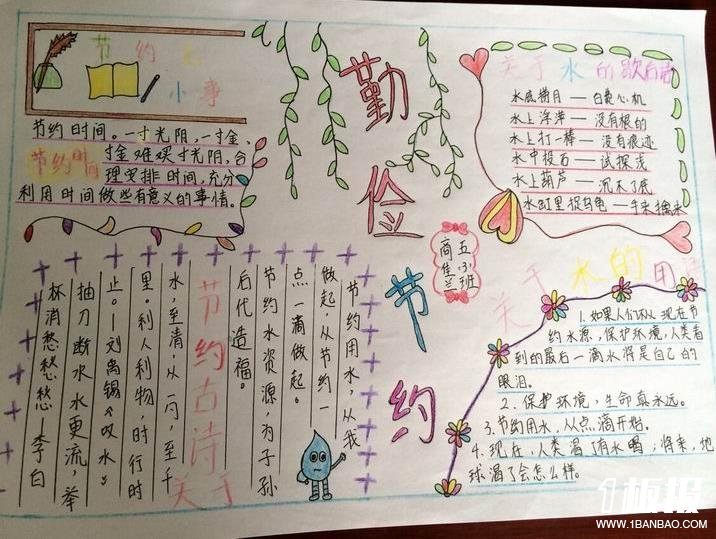 节约无
小事
节约时间。一寸光阴,一寸金,
节约时间
寸金难买寸光阴,合
理安排时间,充分
利用时间做些有意义的事情。
勤俭节约
五(3)班
关于水的歇后语
水底捞月——白费心机
水上浮萍——没有根的
水上打一棒——没有痕迹
水中投石——试探浅
水上葫芦——沉不
水缸里捉乌龟——手来擒来
节约用水,从我
做起,从节约一
点一滴做起。
节约水资源,为子孙
后代造福。
节约古诗
关于
水,至清,从一勺,至千
里。利人利物时行时
止。—刘禹锡《叹水》
抽刀断水水更流,举
杯消愁愁愁—李白
关于水的用语
1.如果人们不从现在节
约水源,保护环境,人类看
到的最后一滴水将是自己的
眼泪。
2、保护环境,生命真永远。
3、节约用水,从点滴开始。
4、现在,人类渴了有水喝;将来,地
球渴了会怎么样。
1板报
WWW.1BANBAO.COM